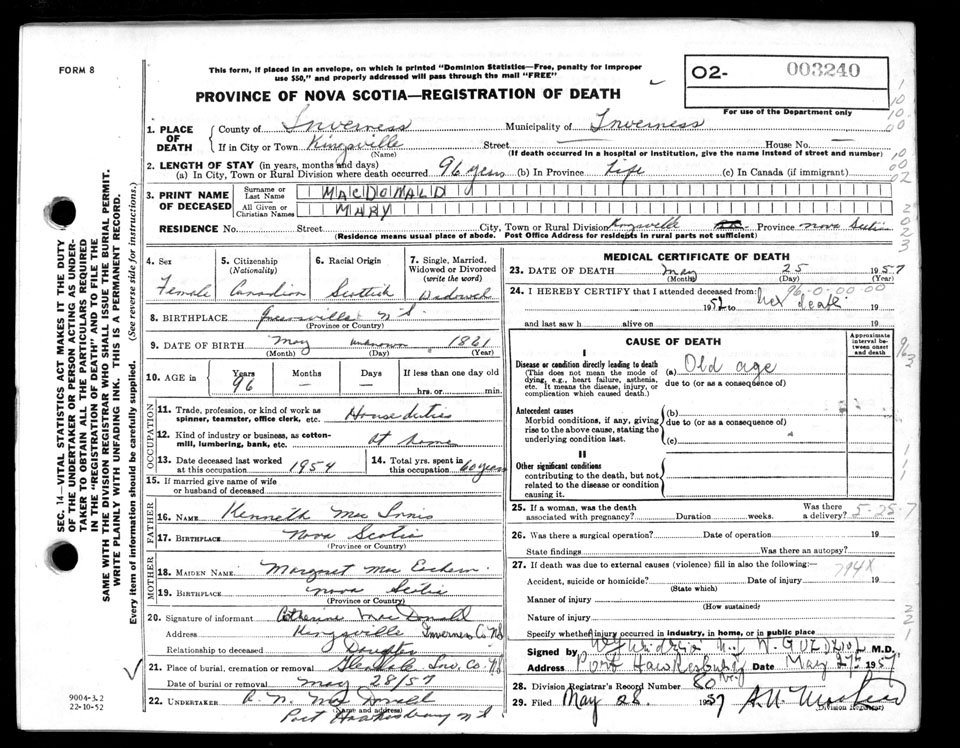 FORM 8
This form, if placed in an envelope, on which is printed "Dominion Statistics—Free, penalty for improper
use $50," and properly addressed will pass through the mail "FREE"
PROVINCE OF NOVA SCOTIA—REGISTRATION OF DEATH
O2- 003240
For use of the Department only
1. PLACE OF DEATH
County of Inverness Municipality of Inverness
If in City or Town Kingsville Street — House No. —
(Name) (If death occurred in a hospital or institution, give the name instead of street and number)
2. LENGTH OF STAY (in years, months and days)
(a) In City, Town or Rural Division where death occurred 96 years (b) In Province Life (c) In Canada (if immigrant)
3. PRINT NAME OF DECEASED
Surname or Last Name MACDONALD
All Given or Christian Names MARY
RESIDENCE No. Street City, Town or Rural Division Kingsville Province Nova Scotia
(Residence means usual place of abode. Post Office Address for residents in rural parts not sufficient)
4. Sex Female
5. Citizenship (Nationality) Canadian
6. Racial Origin Scottish
7. Single, Married, Widowed or Divorced (write the word) Widowed
8. BIRTHPLACE N.S.
(Province or Country)
9. DATE OF BIRTH May unknown 1861
(Month) (Day) (Year)
10. AGE in Years 96 Months — Days — If less than one day old
hrs. or min.
OCCUPATION
11. Trade, profession, or kind of work as
spinner, teamster, office clerk, etc. House duties
12. Kind of industry or business, as cotton-
mill, lumbering, bank, etc. At home
13. Date deceased last worked
at this occupation 1954
14. Total yrs. spent in
this occupation 60 years
15. If married give name of wife
or husband of deceased
FATHER
16. NAME Kenneth Mac Innis
17. BIRTHPLACE Nova Scotia
(Province or Country)
MOTHER
18. MAIDEN NAME Margaret Mac Eachern
19. BIRTHPLACE Nova Scotia
(Province or Country)
20. Signature of informant Catherine Mac Donald
Address Kingsville Inverness Co N.S
Relationship to deceased Daughter
21. Place of burial, cremation or removal Inv. Co. N.S
Date of burial or removal May 28/57
22. UNDERTAKER Mac Donald
(Name and address)
Port Hawkesbury N.S.
MEDICAL CERTIFICATE OF DEATH
23. DATE OF DEATH May 25 1957
(Month) (Day) (Year)
24. I HEREBY CERTIFY that I attended deceased from
96-0-00 00 00
1952 to her death 19
and last saw h alive on 19
CAUSE OF DEATH
Approximate interval between onset and death
I
Disease or condition directly leading to death
(This does not mean the mode of
dying, e.g., heart failure, asthenia,
etc. It means the disease, injury, or
complication which caused death.)
(a) Old age
due to (or as a consequence of)
Antecedent causes
Morbid conditions, if any, giving
rise to the above cause, stating the
underlying condition last.
(b)
due to (or as a consequence of)
(c)
II
Other significant conditions
contributing to the death, but not
related to the disease or condition
causing it.
25. If a woman, was the death
associated with pregnancy? Duration weeks.
Was there
a delivery? 5-25-7
26. Was there a surgical operation? Date of operation 19
State findings Was there an autopsy?
27. If death was due to external causes (violence) fill in also the following:—
794X
Accident, suicide or homicide? Date of injury 19
(State which)
Manner of injury
(How sustained)
Nature of injury
Specify whether injury occurred in industry, in home, or in public place
Signed by M.D.
Address Port Hawkesbury Date May 27 1957
28. Division Registrar's Record Number 80
29. Filed May 28 1957
(Division Registrar)
SEC. 14—VITAL STATISTICS ACT MAKES IT THE DUTY
OF THE UNDERTAKER OR PERSON ACTING AS UNDER-
TAKER TO OBTAIN ALL THE PARTICULARS REQUIRED
IN THE "REGISTRATION OF DEATH" AND TO FILE THE
SAME WITH THE DIVISION REGISTRAR WHO SHALL ISSUE THE BURIAL PERMIT.
WRITE PLAINLY WITH UNFADING INK. THIS IS A PERMANENT RECORD.
Every item of information should be carefully supplied. (See reverse side for instructions.)
9004-3.2
22-10-52